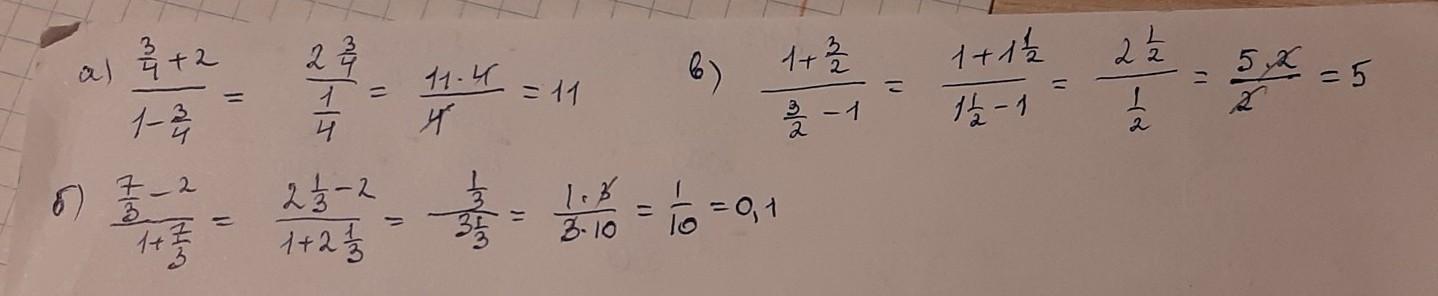 а) (3/4 + 2)/(1 - 3/4) = (2 3/4)/(1/4) = (11·4)/4 = 11
в) (1 + 3/2)/(3/2 - 1) = (1 + 1 1/2)/(1 1/2 - 1) = (2 1/2)/(1/2) = (5·2)/2 = 5
б) (7/3 - 2)/(1 + 7/3) = (2 1/3 - 2)/(1 + 2 1/3) = (1/3)/(3 1/3) = (1·3)/(3·10) = 1/10 = 0,1